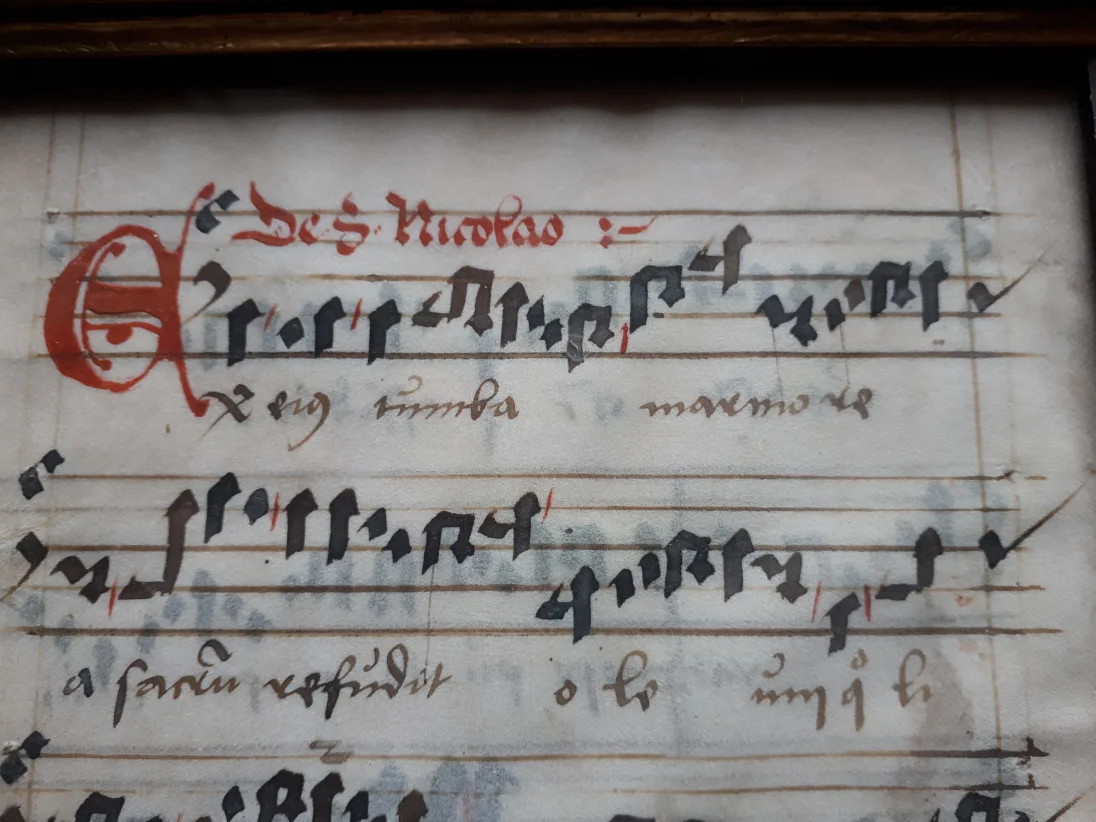 De S. Nicolao :~
Ex eiꝯ tumba marmore
a sacrū refudit o le um q̊ li